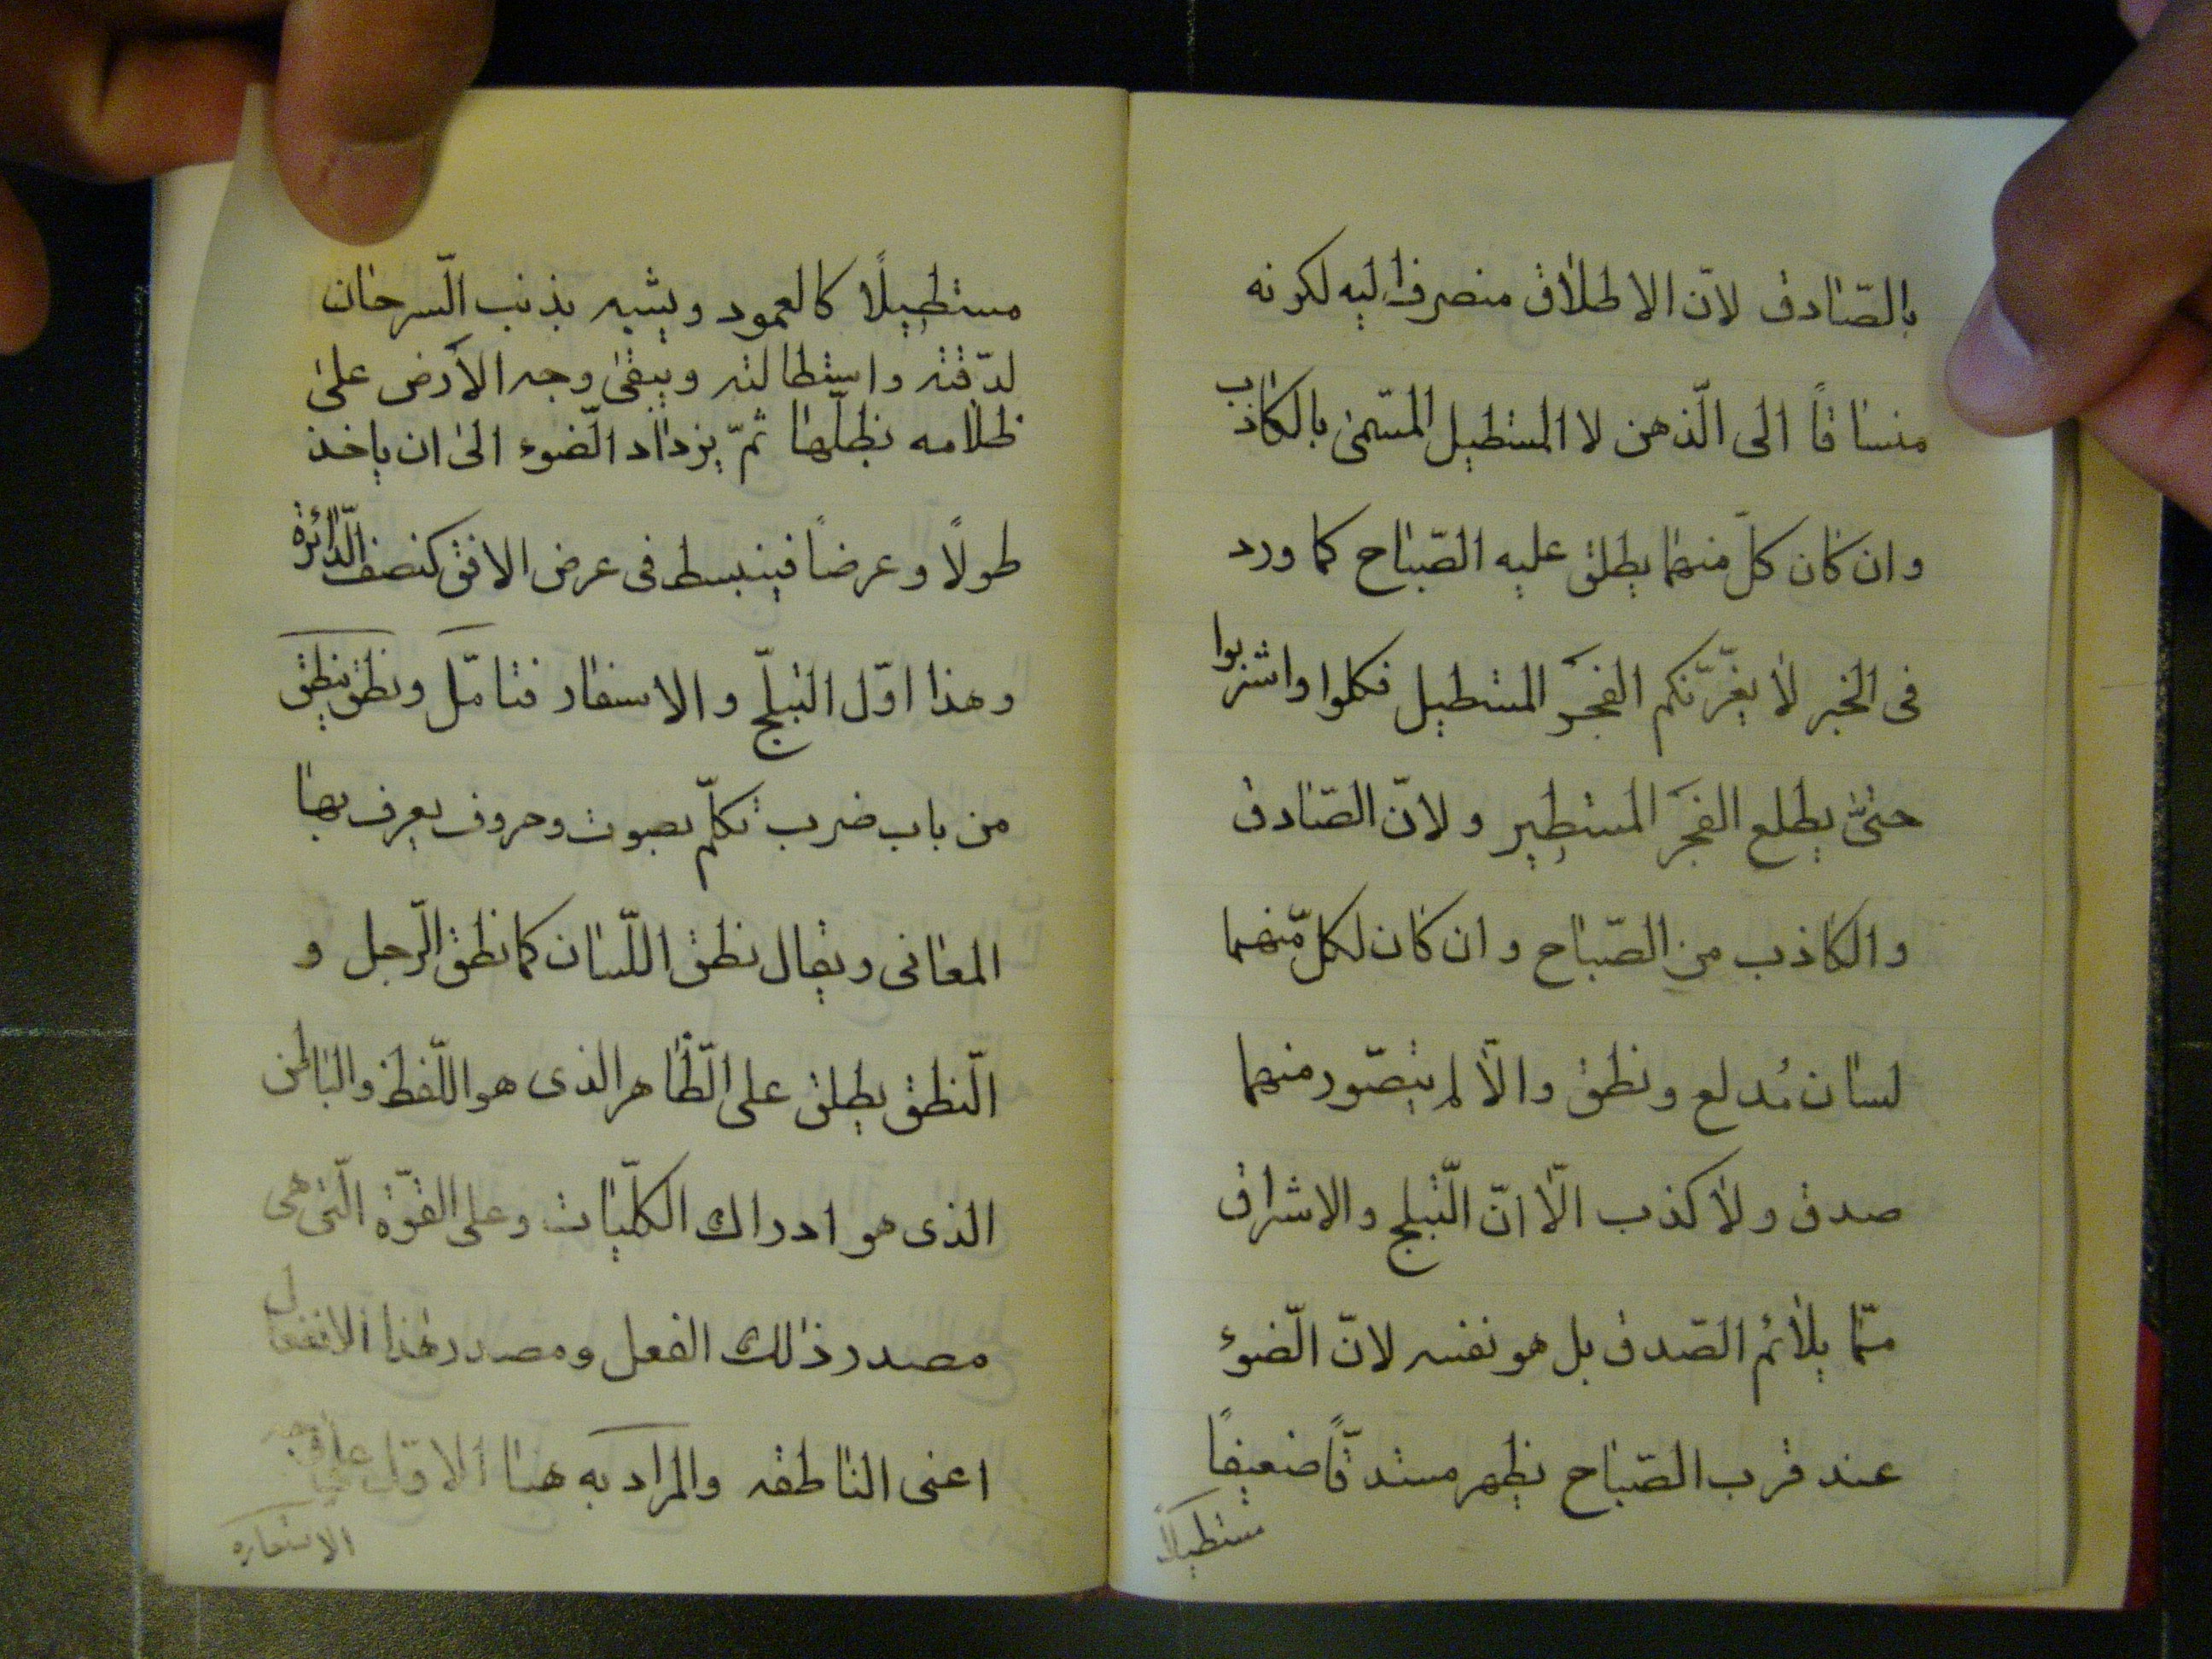 بالصّادق لانّ الاطلاق منصرف اليه لكونه
منساقاً الى الّذهن لا المستطيل المسّمى بالكاذب
وان كان كلّ منهما يطلق عليه الصّباح كما ورد
فى الخبر لا يغرّنّكم الفجر المستطيل فكلوا واشربوا
حتّى يطلع الفجر المستطير ولانّ الصّادق
والكاذب من الصّباح وان كان لكلّ منهما
لسان مُدلع ونطق والّا لم يتصّور منهما
صدق ولا كذب الّا انّ الّتبلج والاشراق
ممّا يلائم الصّدق بل هو نفسه لانّ الّضوء
عند قرب الصّباح يظهر مستدقّاً ضعيفاً
مستطيلاً
مستطيلًا كالعمود ويشبه بذنب الّسرحان
لدّقته واستطالته ويبقى وجه الأرض على
ظلامه بظلّها ثمّ يزداد الّضوء الى ان ياخذ
طولًا وعرضاً فينبسط فى عرض الافق كنصف الّدائرة
وهذا اوّل التبلّج والاسفار فتامّل ونطق ينطق
من باب ضرب تكلّم بصوت وحروف يعرف بها
المعانى ويقال نطق اللّسان كما نطق الّرجل و
الّنطق يطلق على الّظاهر الذى هو اللّفظ والباطن
الذى هو ادراك الكلّيات وعلى القوّة الّتى هى
مصدر ذلك الفعل ومصدر هذا الانفعال
اعنى الناطقه والمراد به هنا الاوّل على وجه
الاستعاره